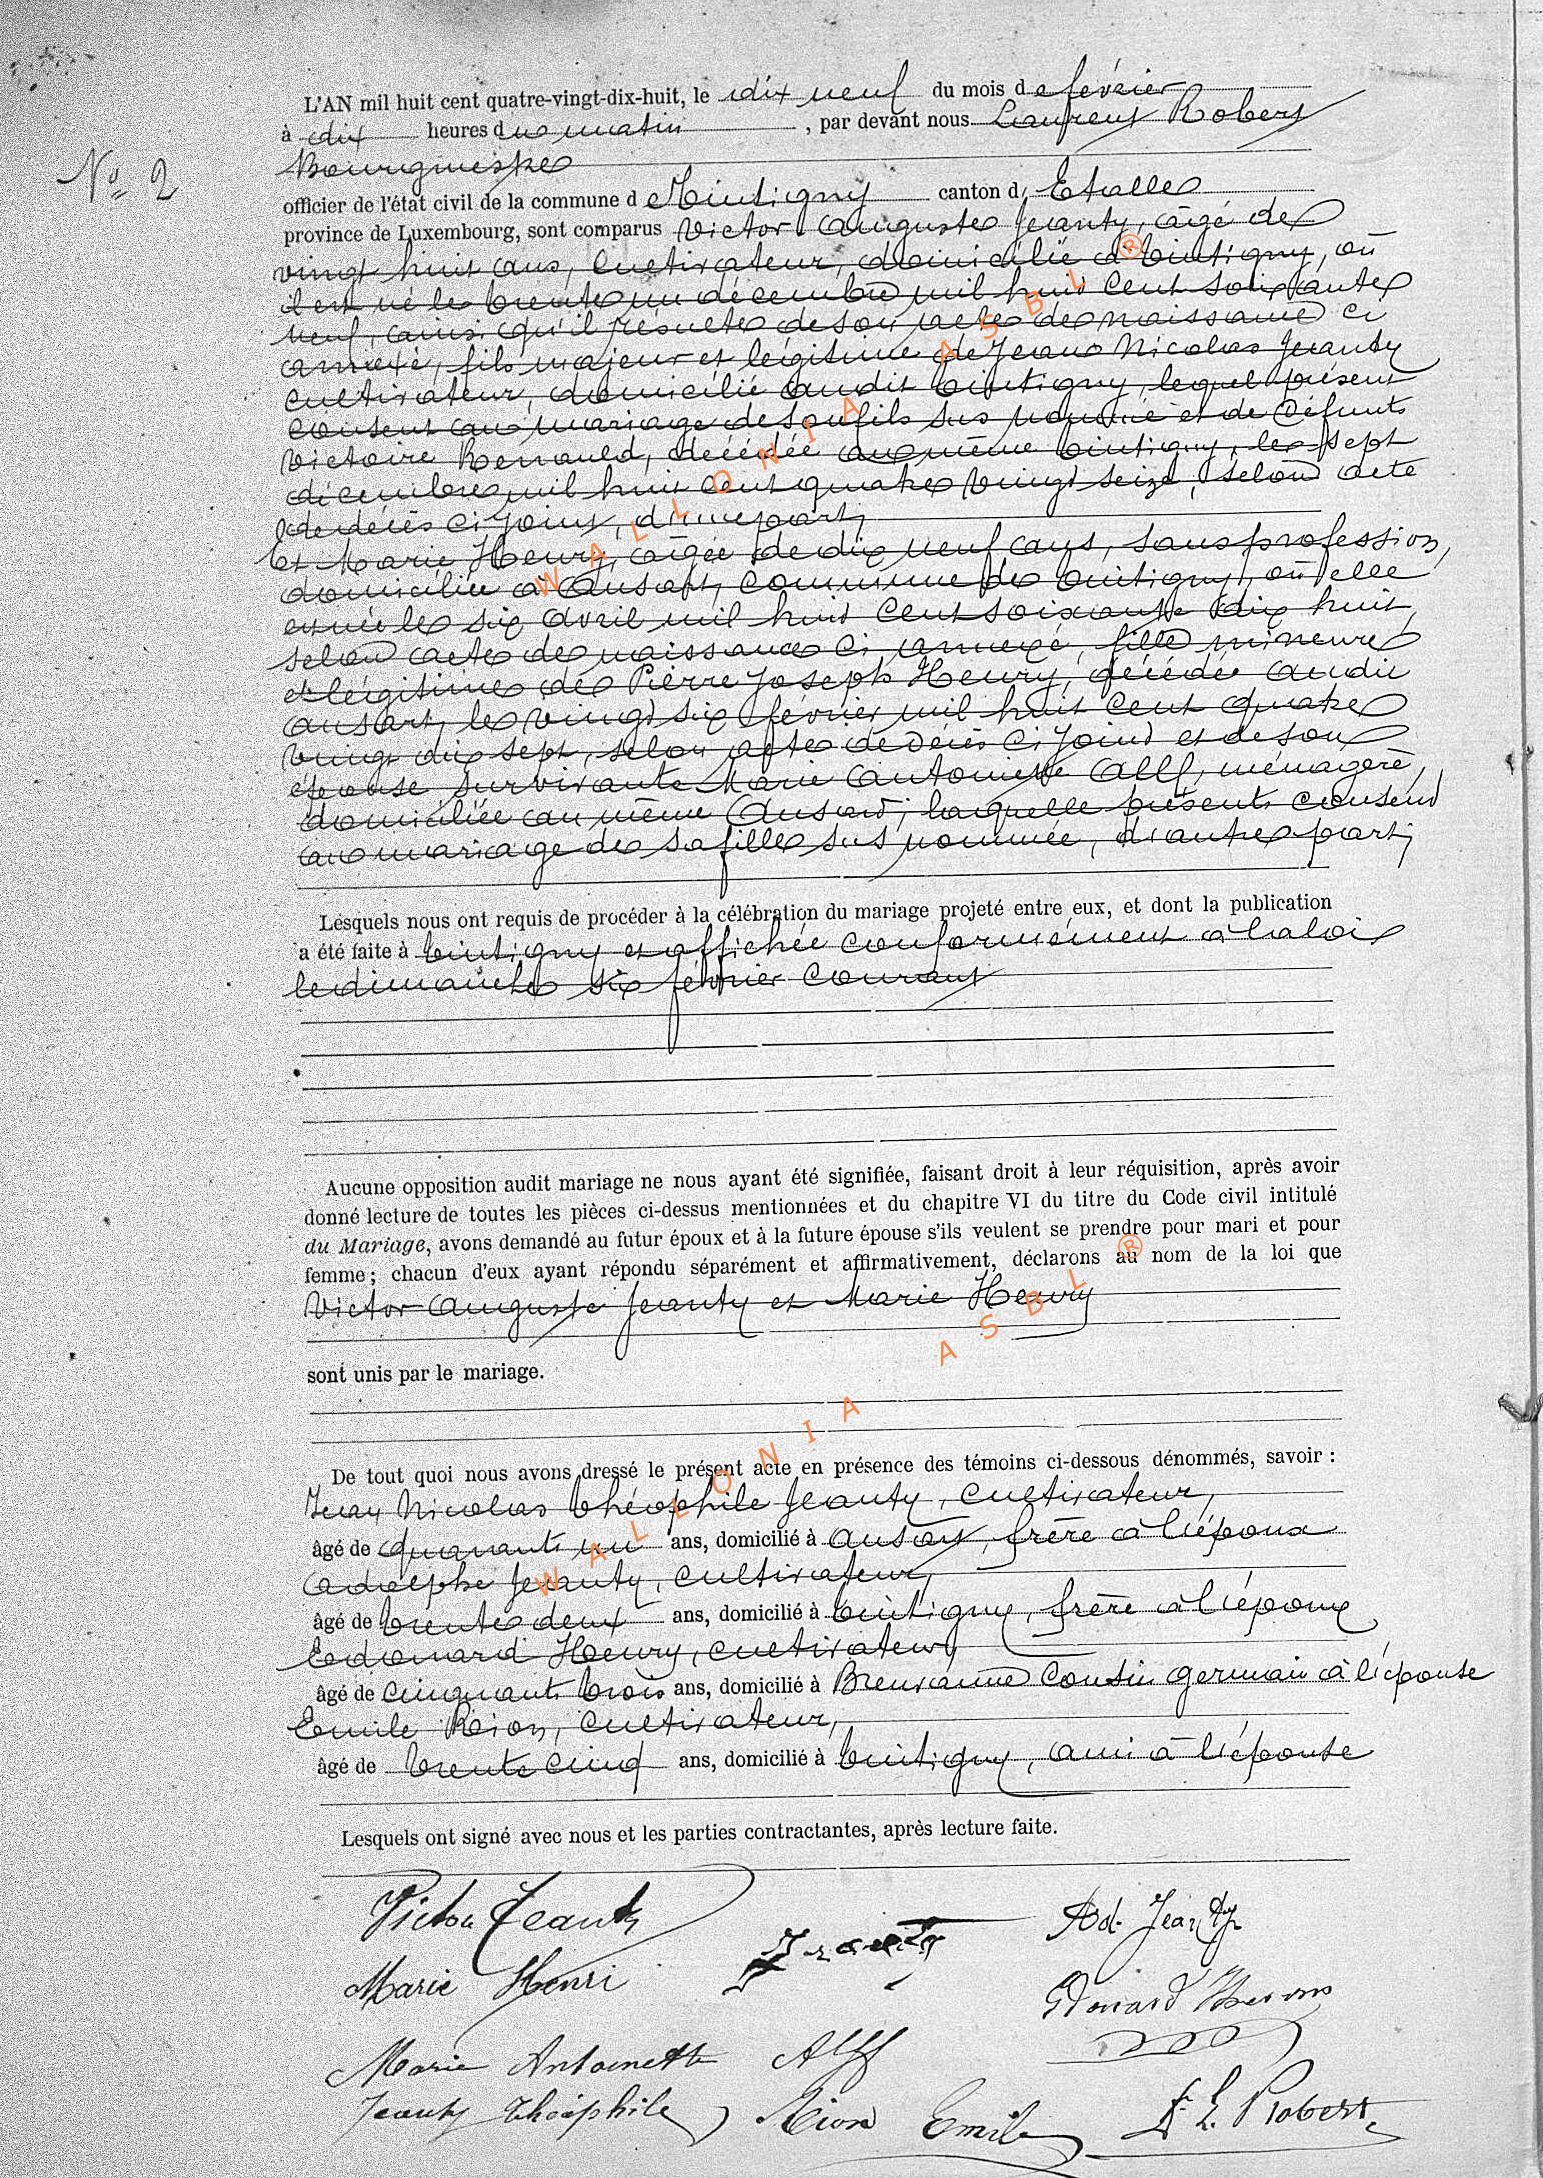 L'AN mil huit cent quatre-vingt-dix-huit, le dix neuf du mois de février
à dix heures du matin, par devant nous Laurent Robert
Bourgmestre
No 2
officier de l'état civil de la commune de Tintigny canton d'Etalle
province de Luxembourg, sont comparus Victor Auguste Jeanty, âgé de
vingt huit ans, cultivateur, domicilié à Tintigny, où
il est né le trente un décembre mil huit cent soixante
neuf, ainsi qu'il résulte de son acte de naissance ci
annexé, fils majeur et légitime de Jean Nicolas Jeanty
cultivateur, domicilié audit Tintigny, lequel présent
consent au mariage de son fils sus nommé et de défunte
Victoire Renauld, décédée au même Tintigny, le sept
décembre mil huit cent quatre vingt seize, selon acte
de décès ci joint, d'une part,
Et Marie Henry, âgée de dix neuf ans, sans profession,
domiciliée à Ansart, commune de Tintigny, où elle
est née le six avril mil huit cent soixante dix huit,
selon acte de naissance ci annexé, fille mineure
et légitime de Pierre Joseph Henry, décédé audit
Ansart, le vingt six février mil huit cent quatre
vingt dix sept, selon acte de décès ci joint et de son
épouse survivante Marie Antoinette Alff, ménagère,
domiciliée au même Ansart, laquelle présente consent
au mariage de sa fille sus nommée, d'autre part,
Lesquels nous ont requis de procéder à la célébration du mariage projeté entre eux, et dont la publication
a été faite à Tintigny et affichée conformément à la loi
le dimanche six février courant
Aucune opposition audit mariage ne nous ayant été signifiée, faisant droit à leur réquisition, après avoir
donné lecture de toutes les pièces ci-dessus mentionnées et du chapitre VI du titre du Code civil intitulé
du Mariage, avons demandé au futur époux et à la future épouse s'ils veulent se prendre pour mari et pour
femme ; chacun d'eux ayant répondu séparément et affirmativement, déclarons au nom de la loi que
Victor Auguste Jeanty et Marie Henry
sont unis par le mariage.
De tout quoi nous avons dressé le présent acte en présence des témoins ci-dessous dénommés, savoir :
Jean Nicolas Théophile Jeanty, cultivateur,
âgé de quarante un ans, domicilié à Ansart, frère à l'époux
Adolphe Jeanty, cultivateur,
âgé de trente deux ans, domicilié à Tintigny, frère à l'époux
Edouard Henry, cultivateur,
âgé de cinquante trois ans, domicilié à Breuvanne cousin germain à l'épouse
Emile Rion, cultivateur,
âgé de trente cinq ans, domicilié à Tintigny, ami à l'épouse
Lesquels ont signé avec nous et les parties contractantes, après lecture faite.
Victor Jeanty
Jeanty
Ad. Jeanty
Marie Henri
Edouard
Marie Antoinette Alff
Jeanty Théophile
Rion Emile
L. Robert
WALLONIA ASBL ®
WALLONIA ASBL ®